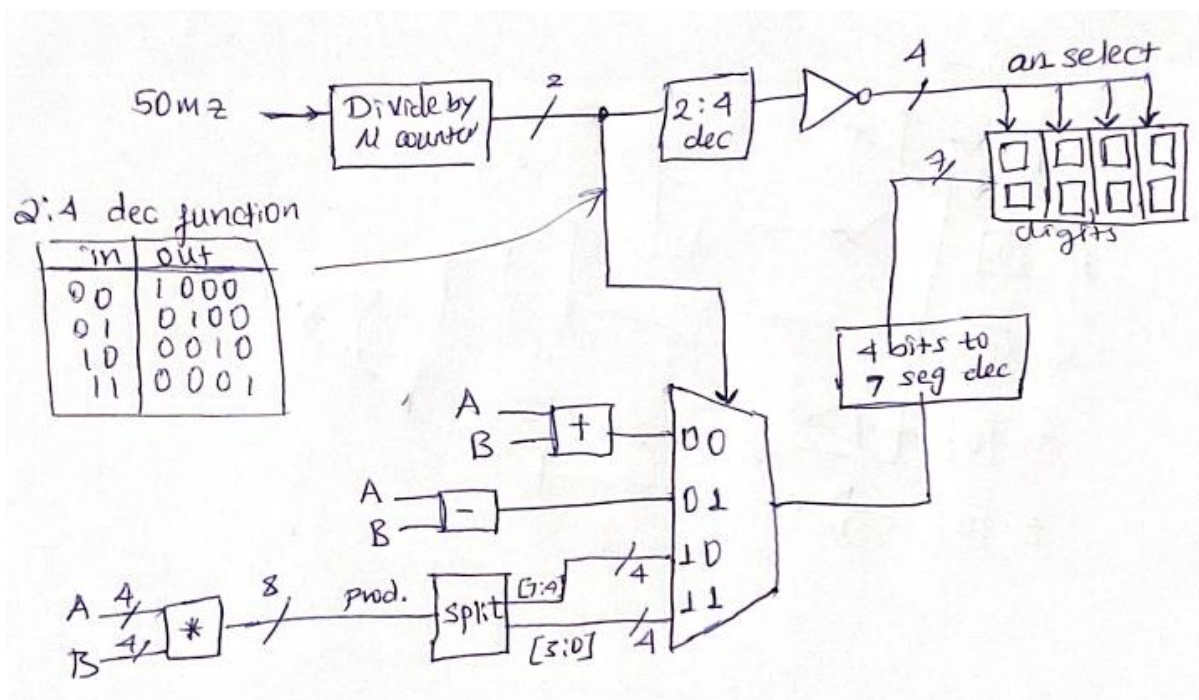 50mz
Divide by
N counter
2
2:4
dec
4
an select
7
digits
2:4 dec function
in out
00 1000
01 0100
10 0010
11 0001
4 bits to
7 seg dec
A
B
+
00
A
B
-
01
10
11
A 4
B 4
*
8
prod.
split
[7:4]
4
[3:0]
4